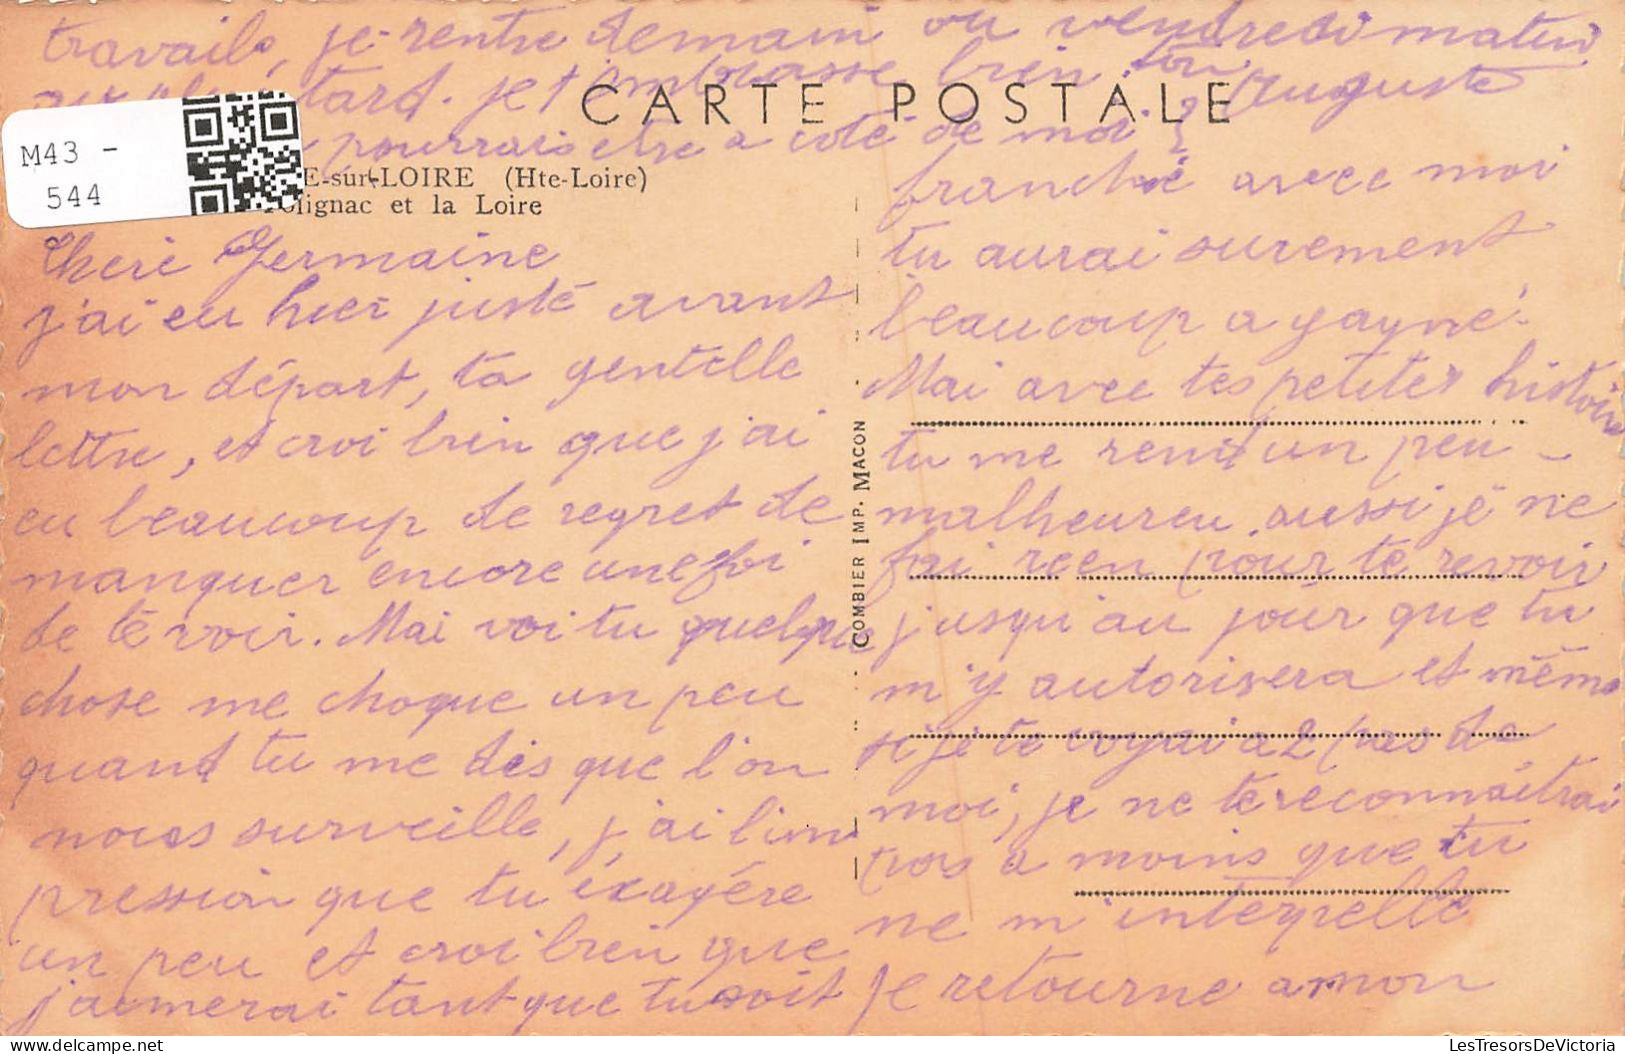 CARTE POSTALE
M43 -
544
E-sur-LOIRE (Hte-Loire)
Polignac et la Loire
COMBIER IMP. MACON
Cheré Germaine
j'ai eu hier justé avant
mon départ, ta gentelle
lettre, et croi bien que j'ai
eu beaucoup de regret de
manquer encore une foi
de té voir. Mai voi tu quelque
chose me choque un peu
quand tu me dis que l'on
nous surveille, j'ai l'im
pression que tu éxagére
un peu et croi bien que
j'aimerai tant que tu soit
franche avece moi
tu aurai surement
beaucoup a gagné.
Mai avec tes petites histoire
tu me rend un peu
malheureu, aussi jé ne
fai reen pour te revoir
jusqu'au jour que tu
m'y autorisera et même
si jé te voyai a 2 pas de
moi, je ne te reconnaitrai
pas a moins que tu
ne m'interpelle
Je retourne a mon
travail, je rentre demain ou vendredi matin
tard. je t'embrasse bien ton Auguste
pourrais etre a coté de moi ?
LesTresorsDeVictoria
delcampe.net